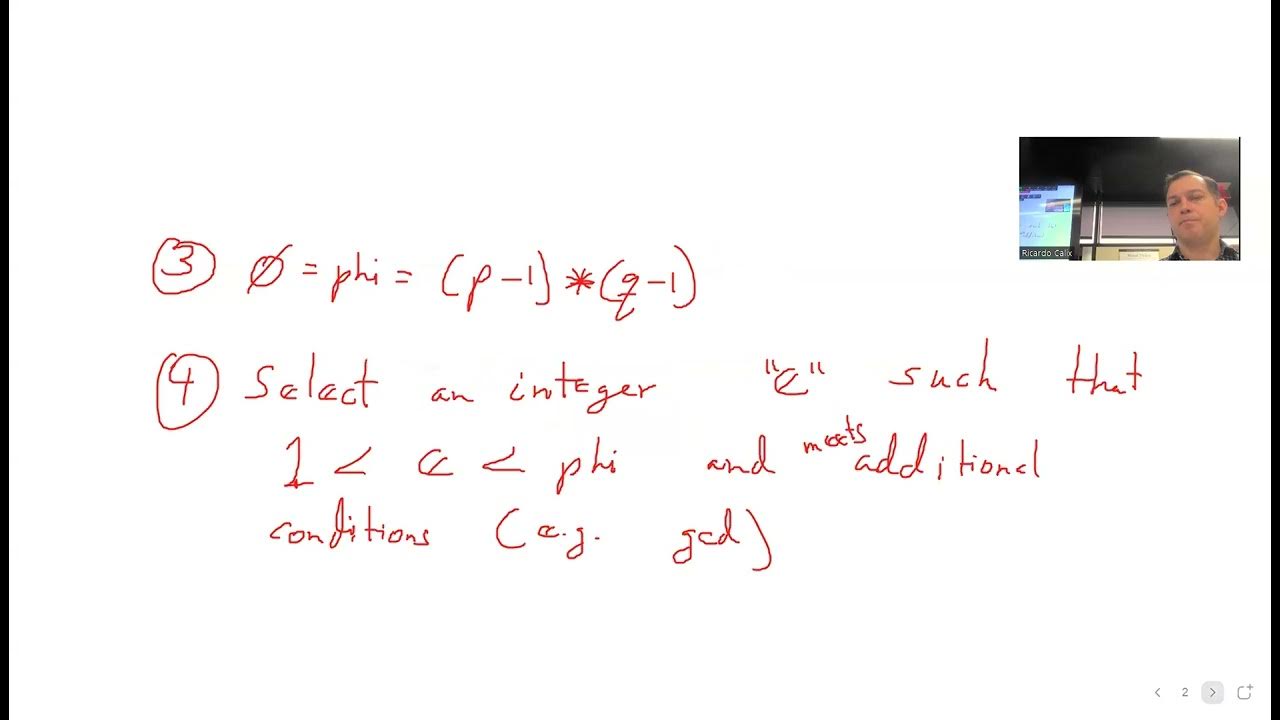 ③ ∅ = phi = (p-1) * (q-1)
④ Select an integer "e" such that
1 < e < phi and meets additional
conditions (e.g. gcd)
Ricardo Calix
2